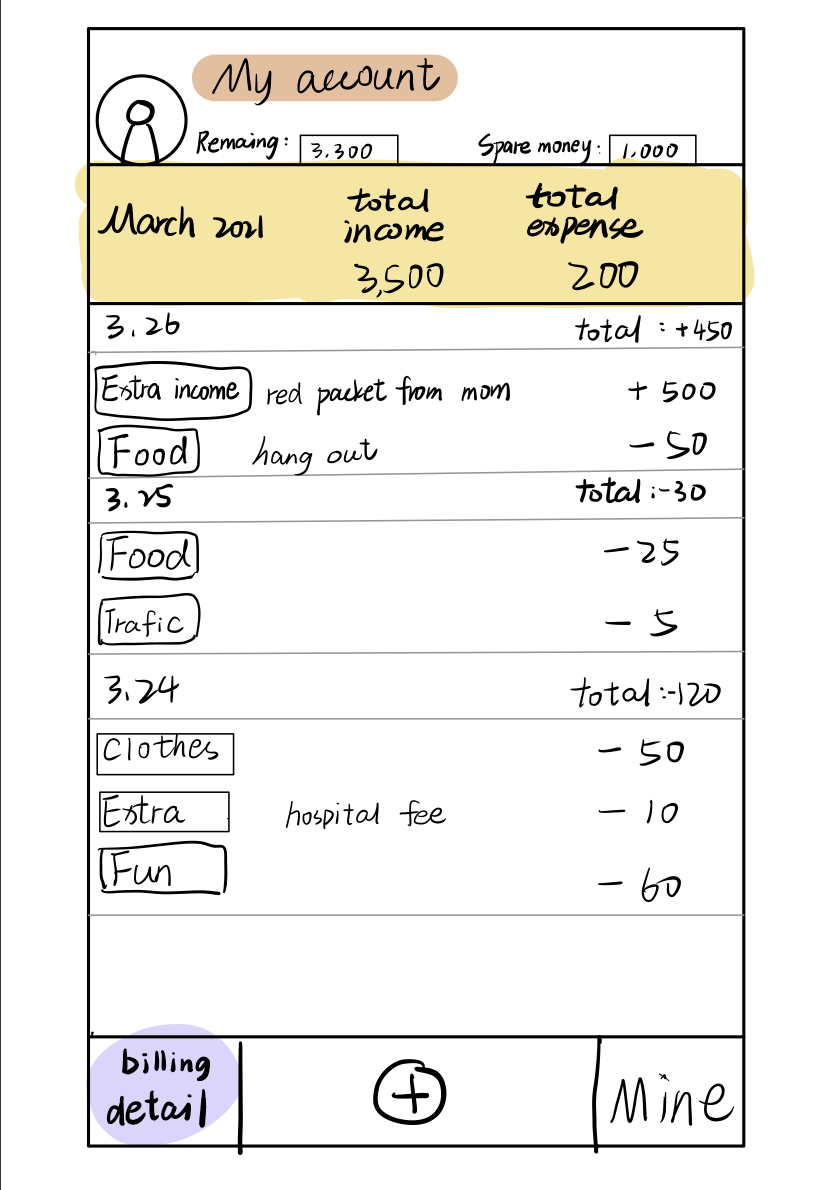 My account
Remaing: 3.300 Spare money: 1.000
March 2021 total income 3,500 total expense 200
3.26 total: +450
Extra income red packet from mom + 500
Food hang out - 50
3.25 total:-30
Food -25
Trafic - 5
3.24 total:-120
Clothes - 50
Extra hospital fee - 10
Fun - 60
billing detail + Mine